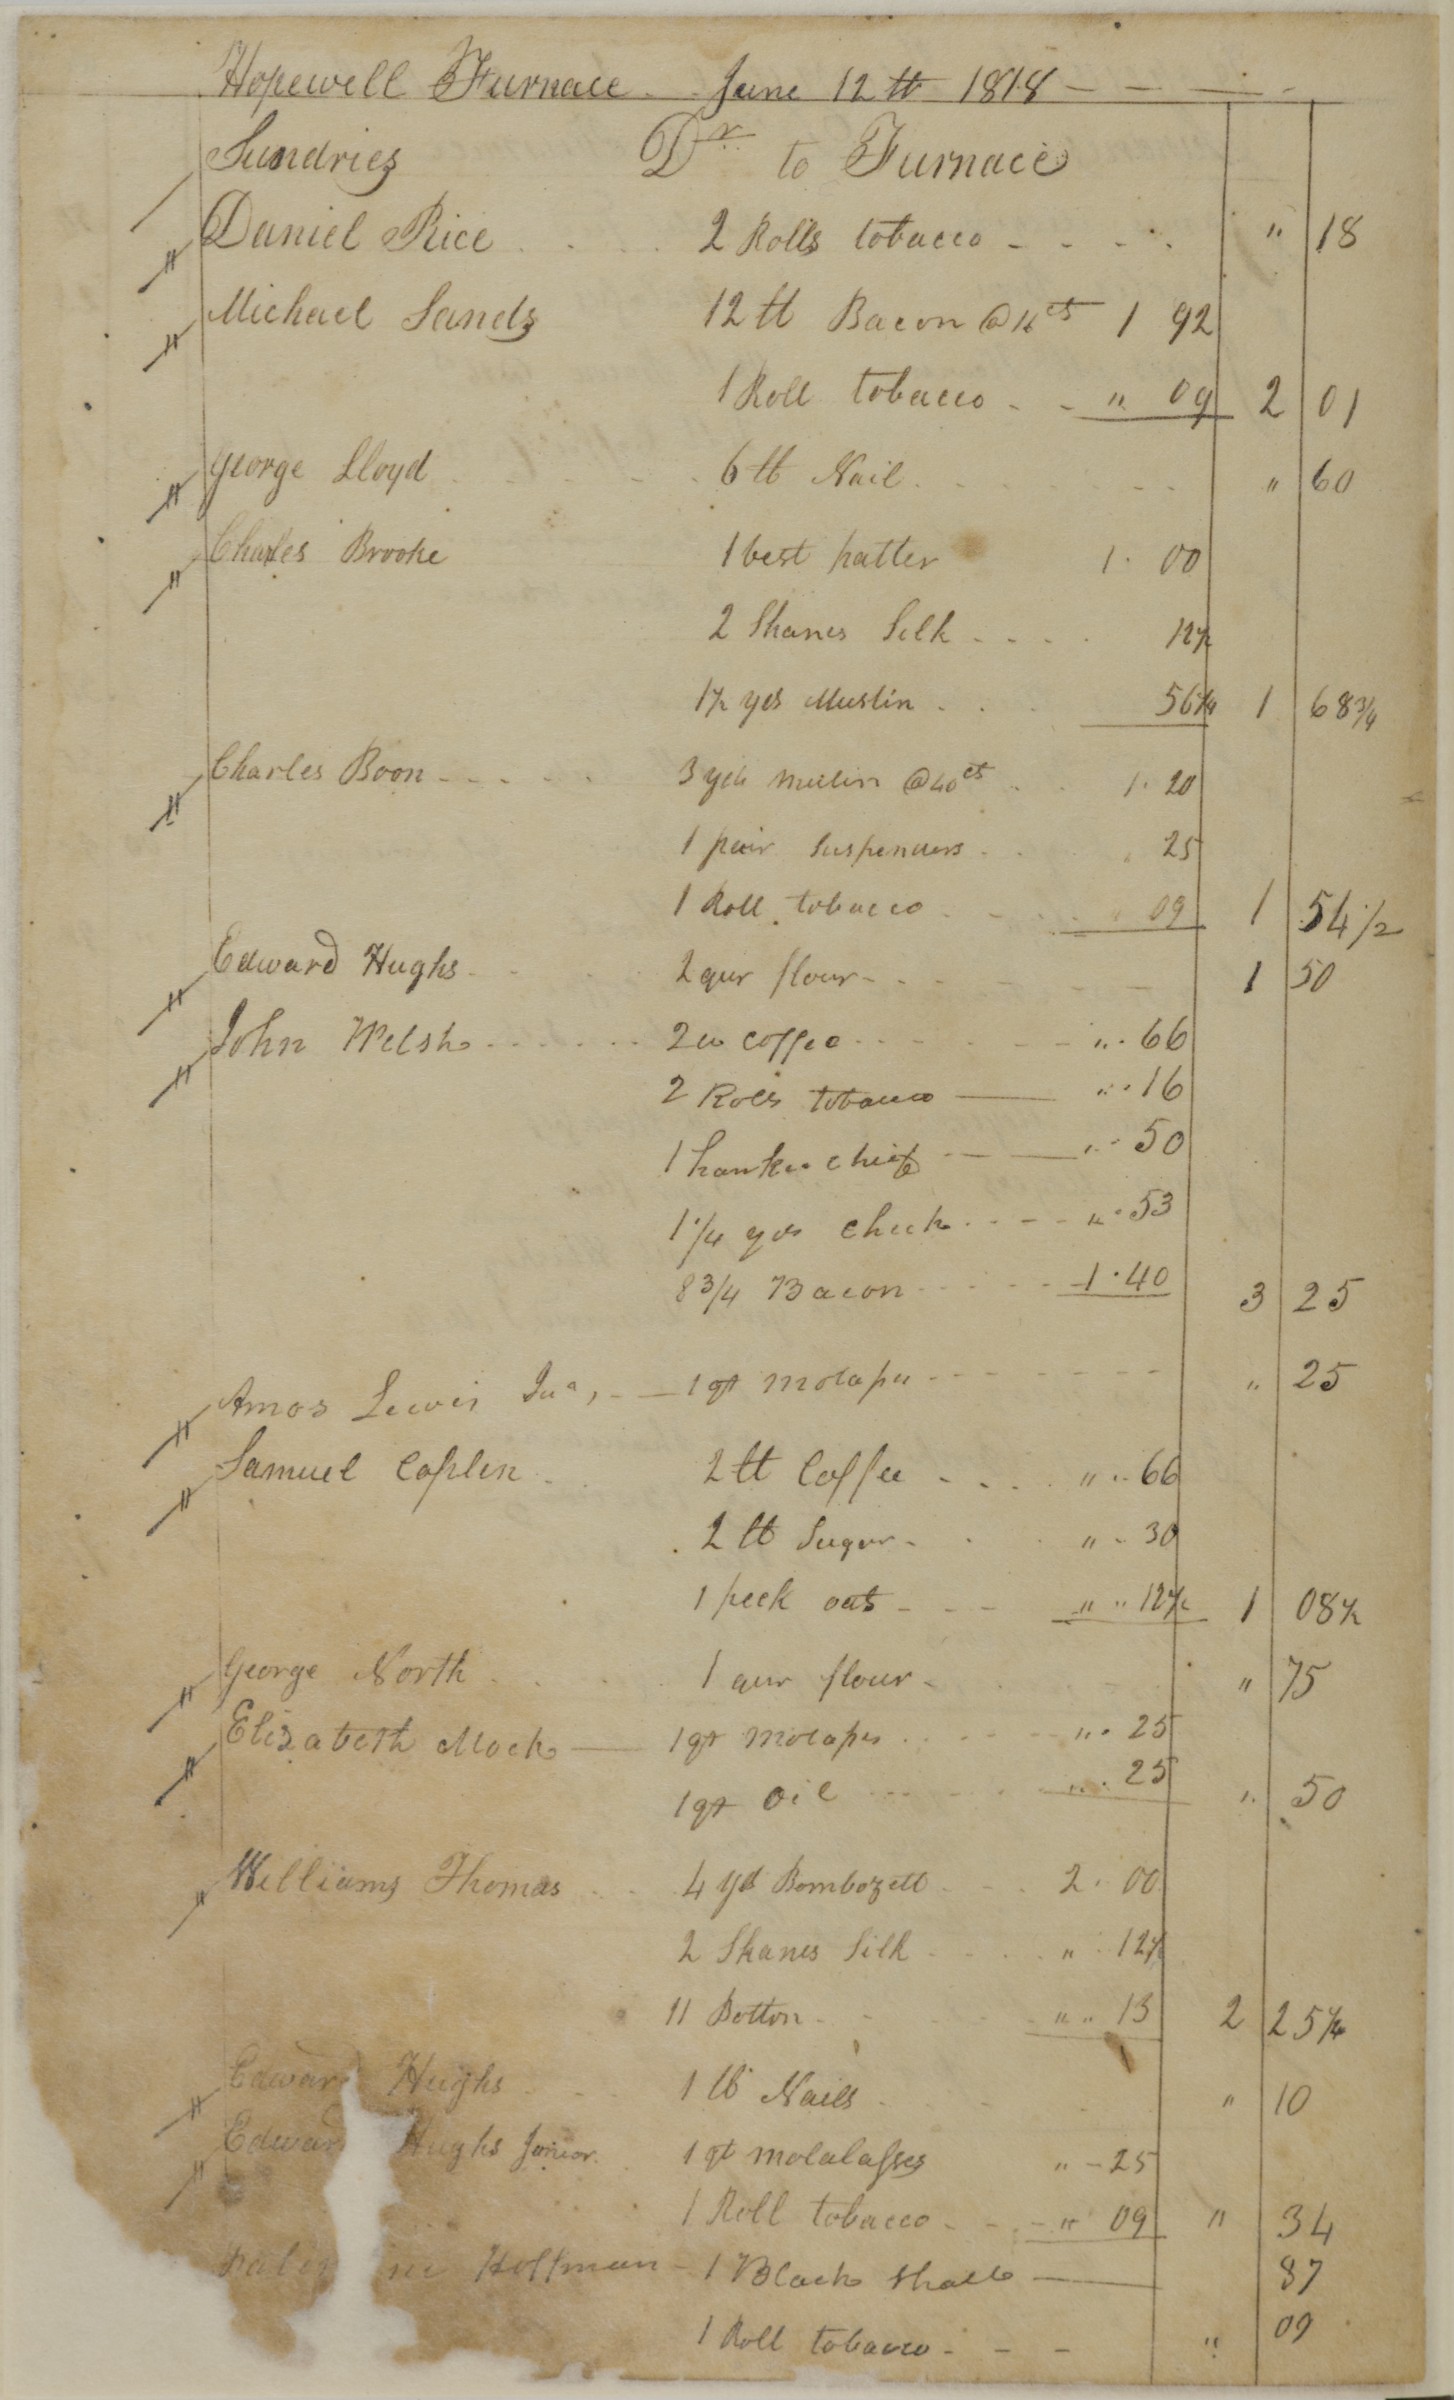 Hopewell Furnace June 12th 1818
Sundries Dr to Furnace
Daniel Rice 2 Rolls tobacco " 18
Michael Sands 12 lb Bacon @ 16cts 1 92
1 Roll tobacco " 09 2 01
George Lloyd 6 lb Nail " 60
Charles Brooke 1 best patter 1.00
2 Skanes Silk 12½
1½ yds Muslin 56¼ 1 68¾
Charles Boon 3 yds Muslin @ 40cts 1.20
1 pair Suspenders 25
1 Roll tobacco " 09 1 54 1/2
Edward Hughs 2 qur flour 1 50
John Welsh 2 lb coffee " 66
2 Rolls tobacco " 16
1 hankerchief " 50
1 1/4 yds check " 53
8 3/4 Bacon 1.40 3 25
Amos Lewis 1 qt molasses " 25
Samuel Caplin 2 lb Coffee " 66
2 lb Sugar " 30
1 peck oats " " 12½ 1 08½
George North 1 qur flour " 75
Elizabeth Mock 1 qt molasses " 25
1 qt oil " 25 " 50
Williams Thomas 4 yd Bombozett 2.00
2 Skanes Silk " 12½
11 Botton " " 13 2 25½
Edward Hughs 1 lb Nails " 10
Edward Hughs Junior 1 qt molalasses " 25
1 Roll tobacco " 09 " 34
Hoffman 1 Black Shall 87
1 Roll tobacco " 09